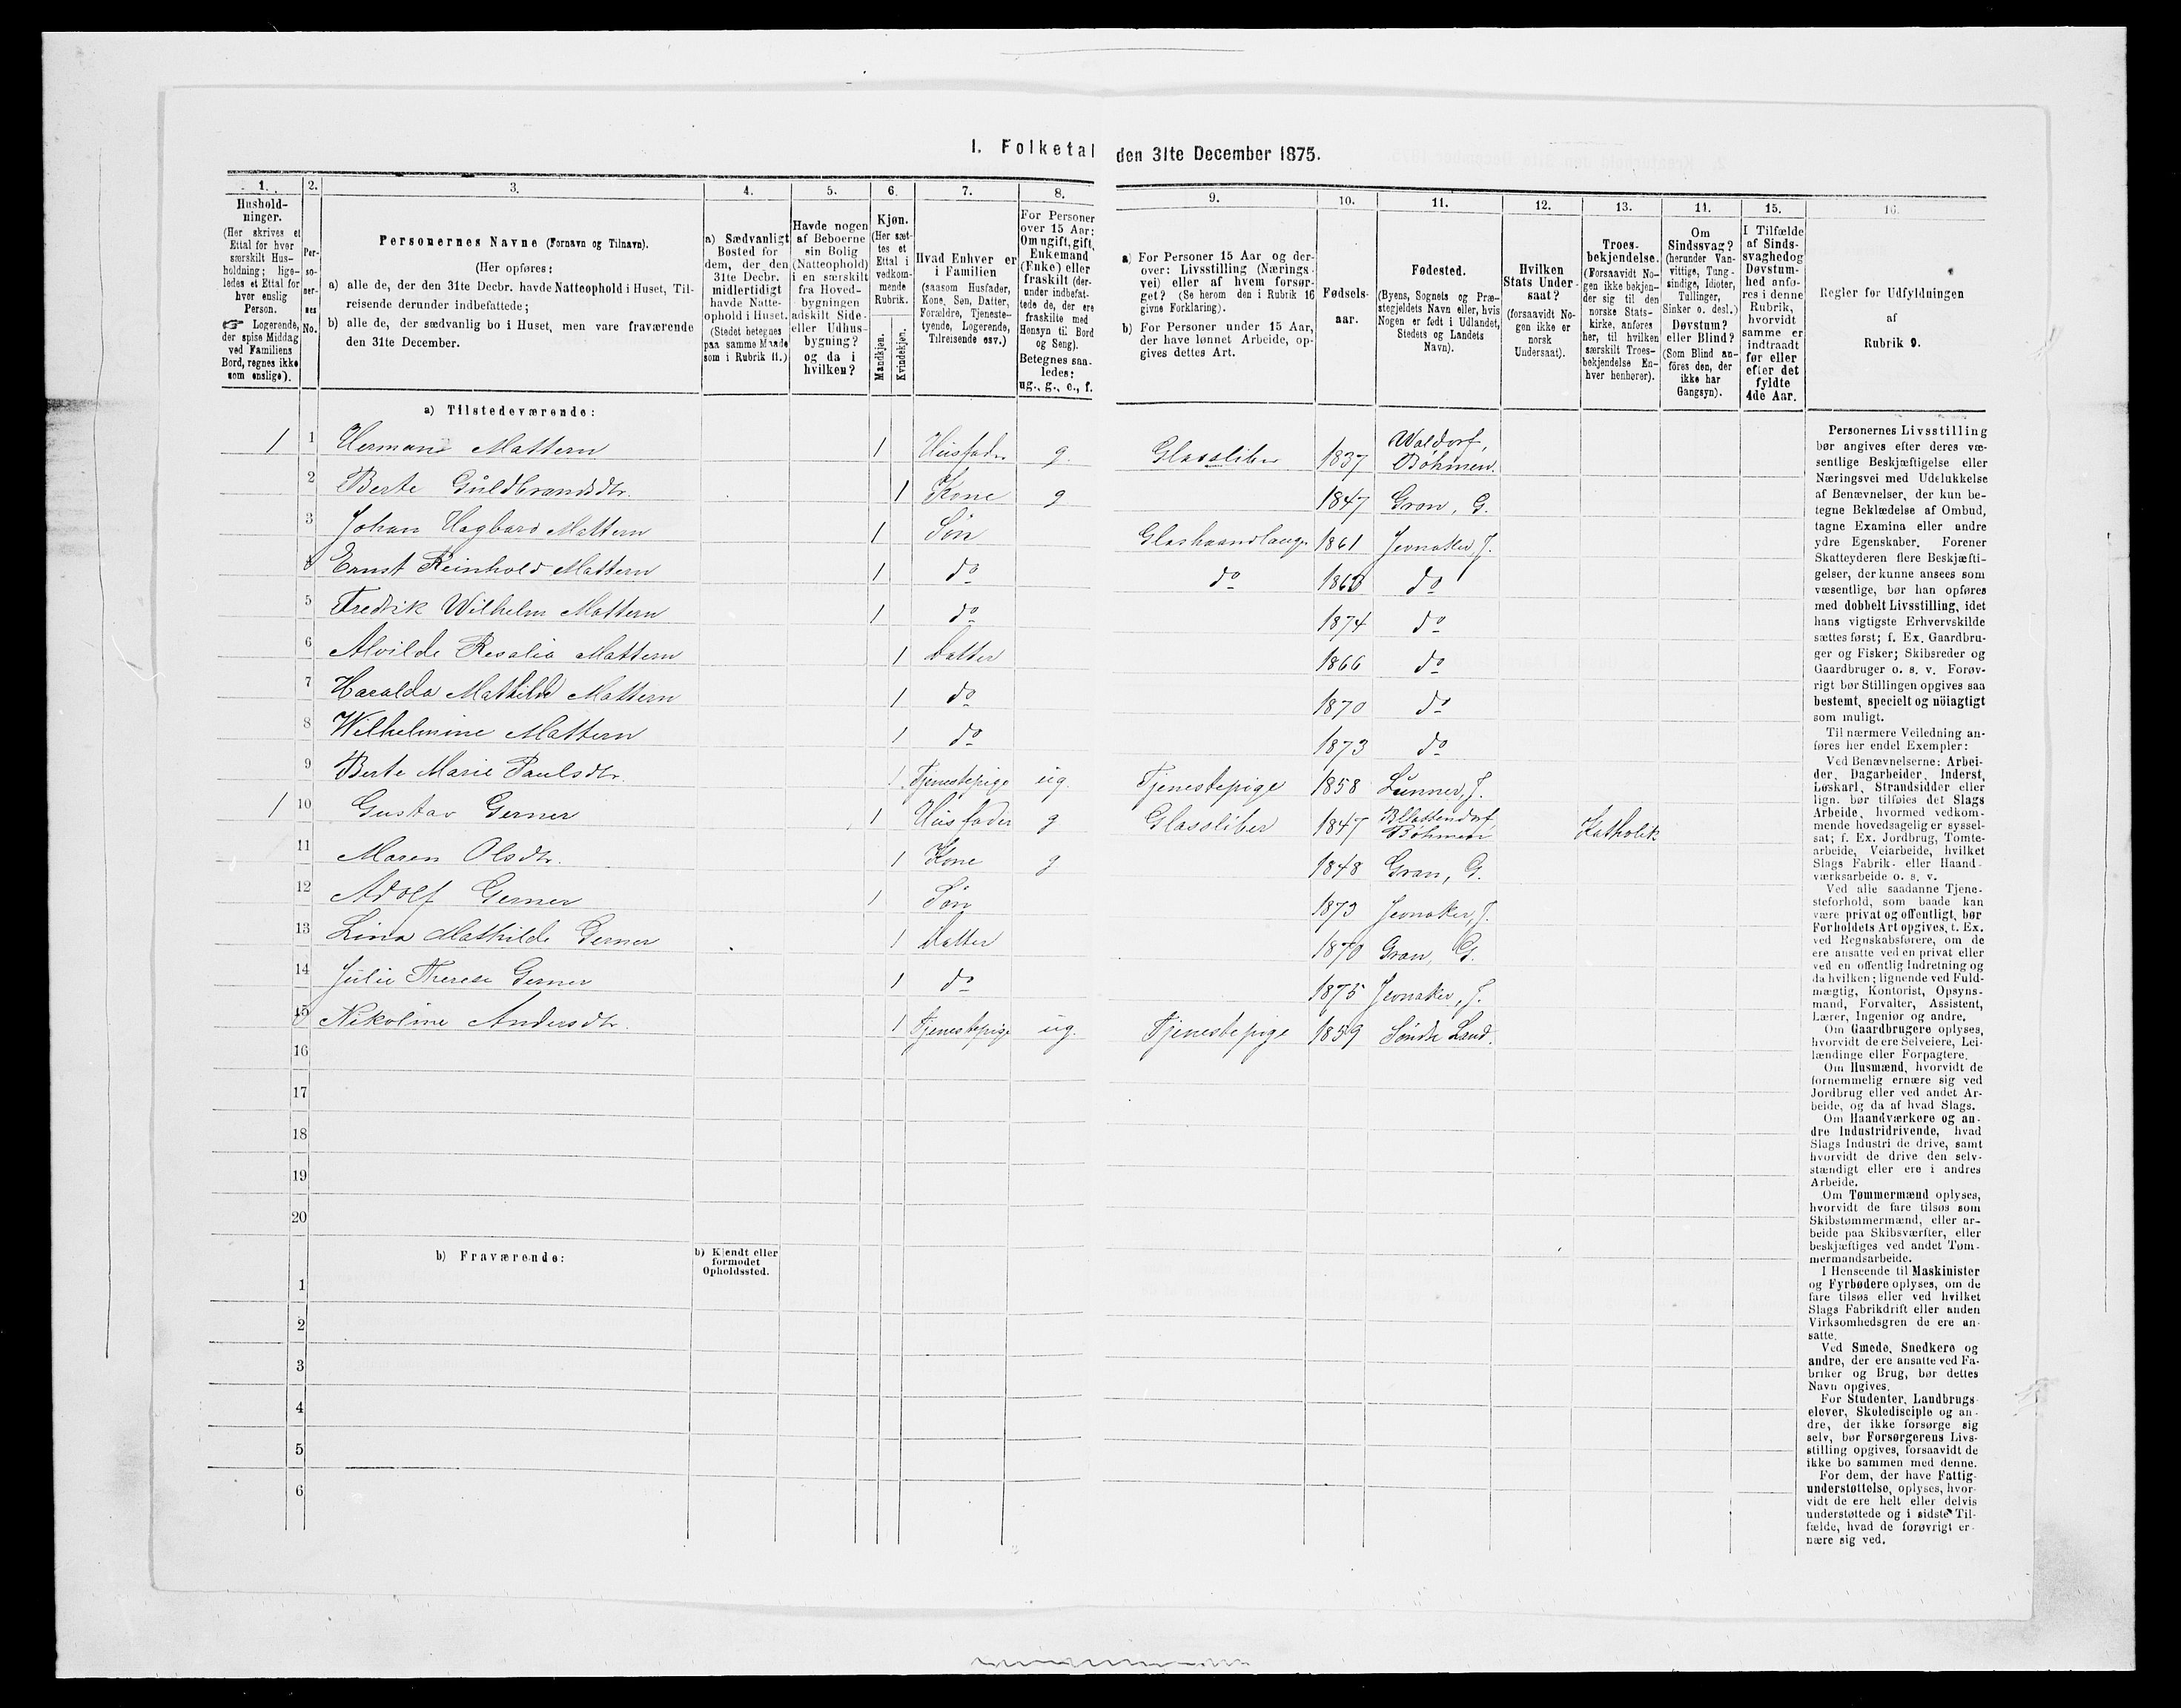 1. Folketal den 31te December 1875.
1. 2. 3. 4. 5. 6. 7. 8. 9. 10. 11. 12. 13. 14. 15. 16.
Husholdninger.
(Her skrives et Ettal for hver særskilt Husholdning; ligeledes et Ettal for hver enslig Person.
☞ Logerende, der spise Middag ved Familiens Bord, regnes ikke som enslige).
Personernes No.
Personernes Navne (Fornavn og Tilnavn).
(Her opføres:
a) alle de, der den 31te Decbr. havde Natteophold i Huset, Tilreisende derunder indbefattede;
b) alle de, der sædvanlig bo i Huset, men vare fraværende den 31te December.
a) Sædvanligt Bosted for dem, der den 31te Decbr. midlertidigt havde Natteophold i Huset. (Stedet betegnes paa samme Maade som i Rubrik 11.)
Havde nogen af Beboerne sin Bolig (Natteophold) i en særskilt fra Hovedbygningen adskilt Side- eller Udhusbygning? og da i hvilken?
Kjøn. (Her sættes et Ettal i vedkommende Rubrik.
Mandkjøn. Kvindekjøn.
Hvad Enhver er i Familien (saasom Husfader, Kone, Søn, Datter, Forældre, Tjenestetyende, Logerende, Tilreisende osv.)
For Personer over 15 Aar: Om ugift, gift, Enkemand (Enke) eller fraskilt (derunder indbefattede de, der ere fraskilte med Hensyn til Bord og Seng). Betegnes saaledes: ug., g., e., f.
a) For Personer 15 Aar og derover: Livsstilling (Næringsvei) eller af hvem forsørget? (Se herom den i Rubrik 16 givne Forklaring).
b) For Personer under 15 Aar, der have lønnet Arbeide, opgives dettes Art.
Fødselsaar.
Fødested. (Byens, Sognets og Præstegjeldets Navn eller, hvis Nogen er født i Udlandet, Stedets og Landets Navn).
Hvilken Stats Undersaat? (forsaavidt Nogen ikke er norsk Undersaat).
Troesbekjendelse. (Forsaavidt Nogen ikke bekjender sig til den norske Statskirke, anføres her, til hvilken særskilt Troesbekjendelse Enhver henhører).
Om Sindssvag? (herunder Vanvittige, Tungsindige, Idioter, Tullinger, Sinker o. desl.) Døvstum? eller Blind? (Som Blind anføres den, der ikke har Gangsyn).
I Tilfælde af Sindssvaghed og Døvstumhed anføres i denne Rubrik, hvorvidt samme er indtraadt før eller efter det fyldte 4de Aar.
Regler for Udfyldningen af Rubrik 9.
a) Tilstedeværende:
1 1 Herman Mattern 1 Husfader g Glassliber 1837 Waldorf, Böhmen.
2 Berte Guldbrandsdtr. 1 Kone g 1847 Gran, G.
3 Johan Hagbard Mattern 1 Søn Glashaandlanger 1861 Jevnaker, J.
4 Ernst Reinhold Mattern 1 do do 1863 do
5 Fredrik Wilhelm Mattern 1 do 1874 do
6 Alvilde Rosalia Mattern 1 Datter 1866 do
7 Haralda Mathilde Mattern 1 do 1870 do
8 Wilhelmine Mattern 1 do 1873 do
9 Berte Marie Paulsdtr. 1 Tjenestepige ug. Tjenestepige 1858 Lunner, J.
1 10 Gustav Gerner 1 Husfader g Glassliber 1847 Blattendorf Böhmen Katholik
11 Maren Olsdtr. 1 Kone g 1848 Gran, G.
12 Adolf Gerner 1 Søn 1873 Jevnaker, J.
13 Lina Mathilde Gerner 1 Datter 1870 Gran, G.
14 Julie Therese Gerner 1 do 1875 Jevnaker, J.
15 Nikoline Andersdtr. 1 Tjenestepige ug. Tjenestepige 1859 Søndre Land.
16
17
18
19
20
b) Fraværende: b) Kjendt eller formodet Opholdssted.
1
2
3
4
5
6
Personernes Livsstilling
bør angives efter deres væ-
sentlige Beskjæftigelse eller
Næringsvei med Udelukkelse
af Benævnelser, der kun be-
tegne Beklædelse af Ombud,
tagne Examina eller andre
ydre Egenskaber. Forener
Skatteyderen flere Beskjæfti-
gelser, der kunne ansees som
væsentlige, bør han opføres
med dobbelt Livsstilling, idet
hans vigtigste Erhvervskilde
sættes først; f. Ex. Gaardbru-
ger og Fisker; Skibsreder og
Gaardbruger o. s. v. Forøv-
rigt bør Stillingen opgives saa
bestemt, specielt og nöiagtigt
som muligt.
Til nærmere Veiledning an-
føres her endel Exempler:
Ved Benævnelserne: Arbei-
der, Dagarbeider, Inderst,
Løskarl, Strandsidder eller
lign. bør tilføies det Slags
Arbeide, hvormed vedkom-
mende hovedsagelig er syssel-
sat; f. Ex. Jordbrug, Tomte-
arbeide, Veiarbeide, hvilket
Slags Fabrik- eller Haand-
værksarbeide o. s. v.
Ved alle saadanne Tjene-
steforhold, som baade kan
være privat og offentligt, bør
Forholdets Art opgives, t. Ex.
ved Regnskabsførere, om de
ere ansatte ved en privat eller
ved en offentlig Indretning og
da hvilken; lignende ved Fuld-
mægtig, Kontorist, Opsyns-
mand, Forvalter, Assistent,
Lærer, Ingeniør og andre.
Om Gaardbrugere oplyses,
hvorvidt de ere Selveiere, Lei-
lændinge eller Forpagtere.
Om Husmænd, hvorvidt de
fornemmelig ernære sig ved
Jordbrug eller ved andet Ar-
beide, og da af hvad Slags.
Om Haandværkere og an-
dre Industridrivende, hvad
Slags Industri de drive, samt
hvorvidt de drive den selv-
stændigt eller ere i andres
Arbeide.
Om Tømmermænd oplyses,
hvorvidt de fare tilsøs som
Skibstømmermænd, eller ar-
beide paa Skibsværfter, eller
beskjæftiges ved andet Tøm-
mermandsarbeide.
I Henseende til Maskinister
og Fyrbødere oplyses, om de
fare tilsøs eller ved hvilket
Slags Fabrikdrift eller anden
Virksomhedsgren de ere an-
satte.
Ved Smede, Snedkere og
andre, der ere ansatte ved Fa-
briker og Brug, bør dettes
Navn opgives.
For Studenter, Landbrugs-
elever, Skoledisciple og an-
dre, der ikke forsørge sig
selv, bør Forsørgerens Livs-
stilling opgives, forsaavidt de
ikke bo sammen med denne.
For dem, der have Fattig-
understøttelse, oplyses, hvor-
vidt de ere helt eller delvis
understøttede og i sidste Til-
fælde, hvad de forøvrigt er-
nære sig ved.